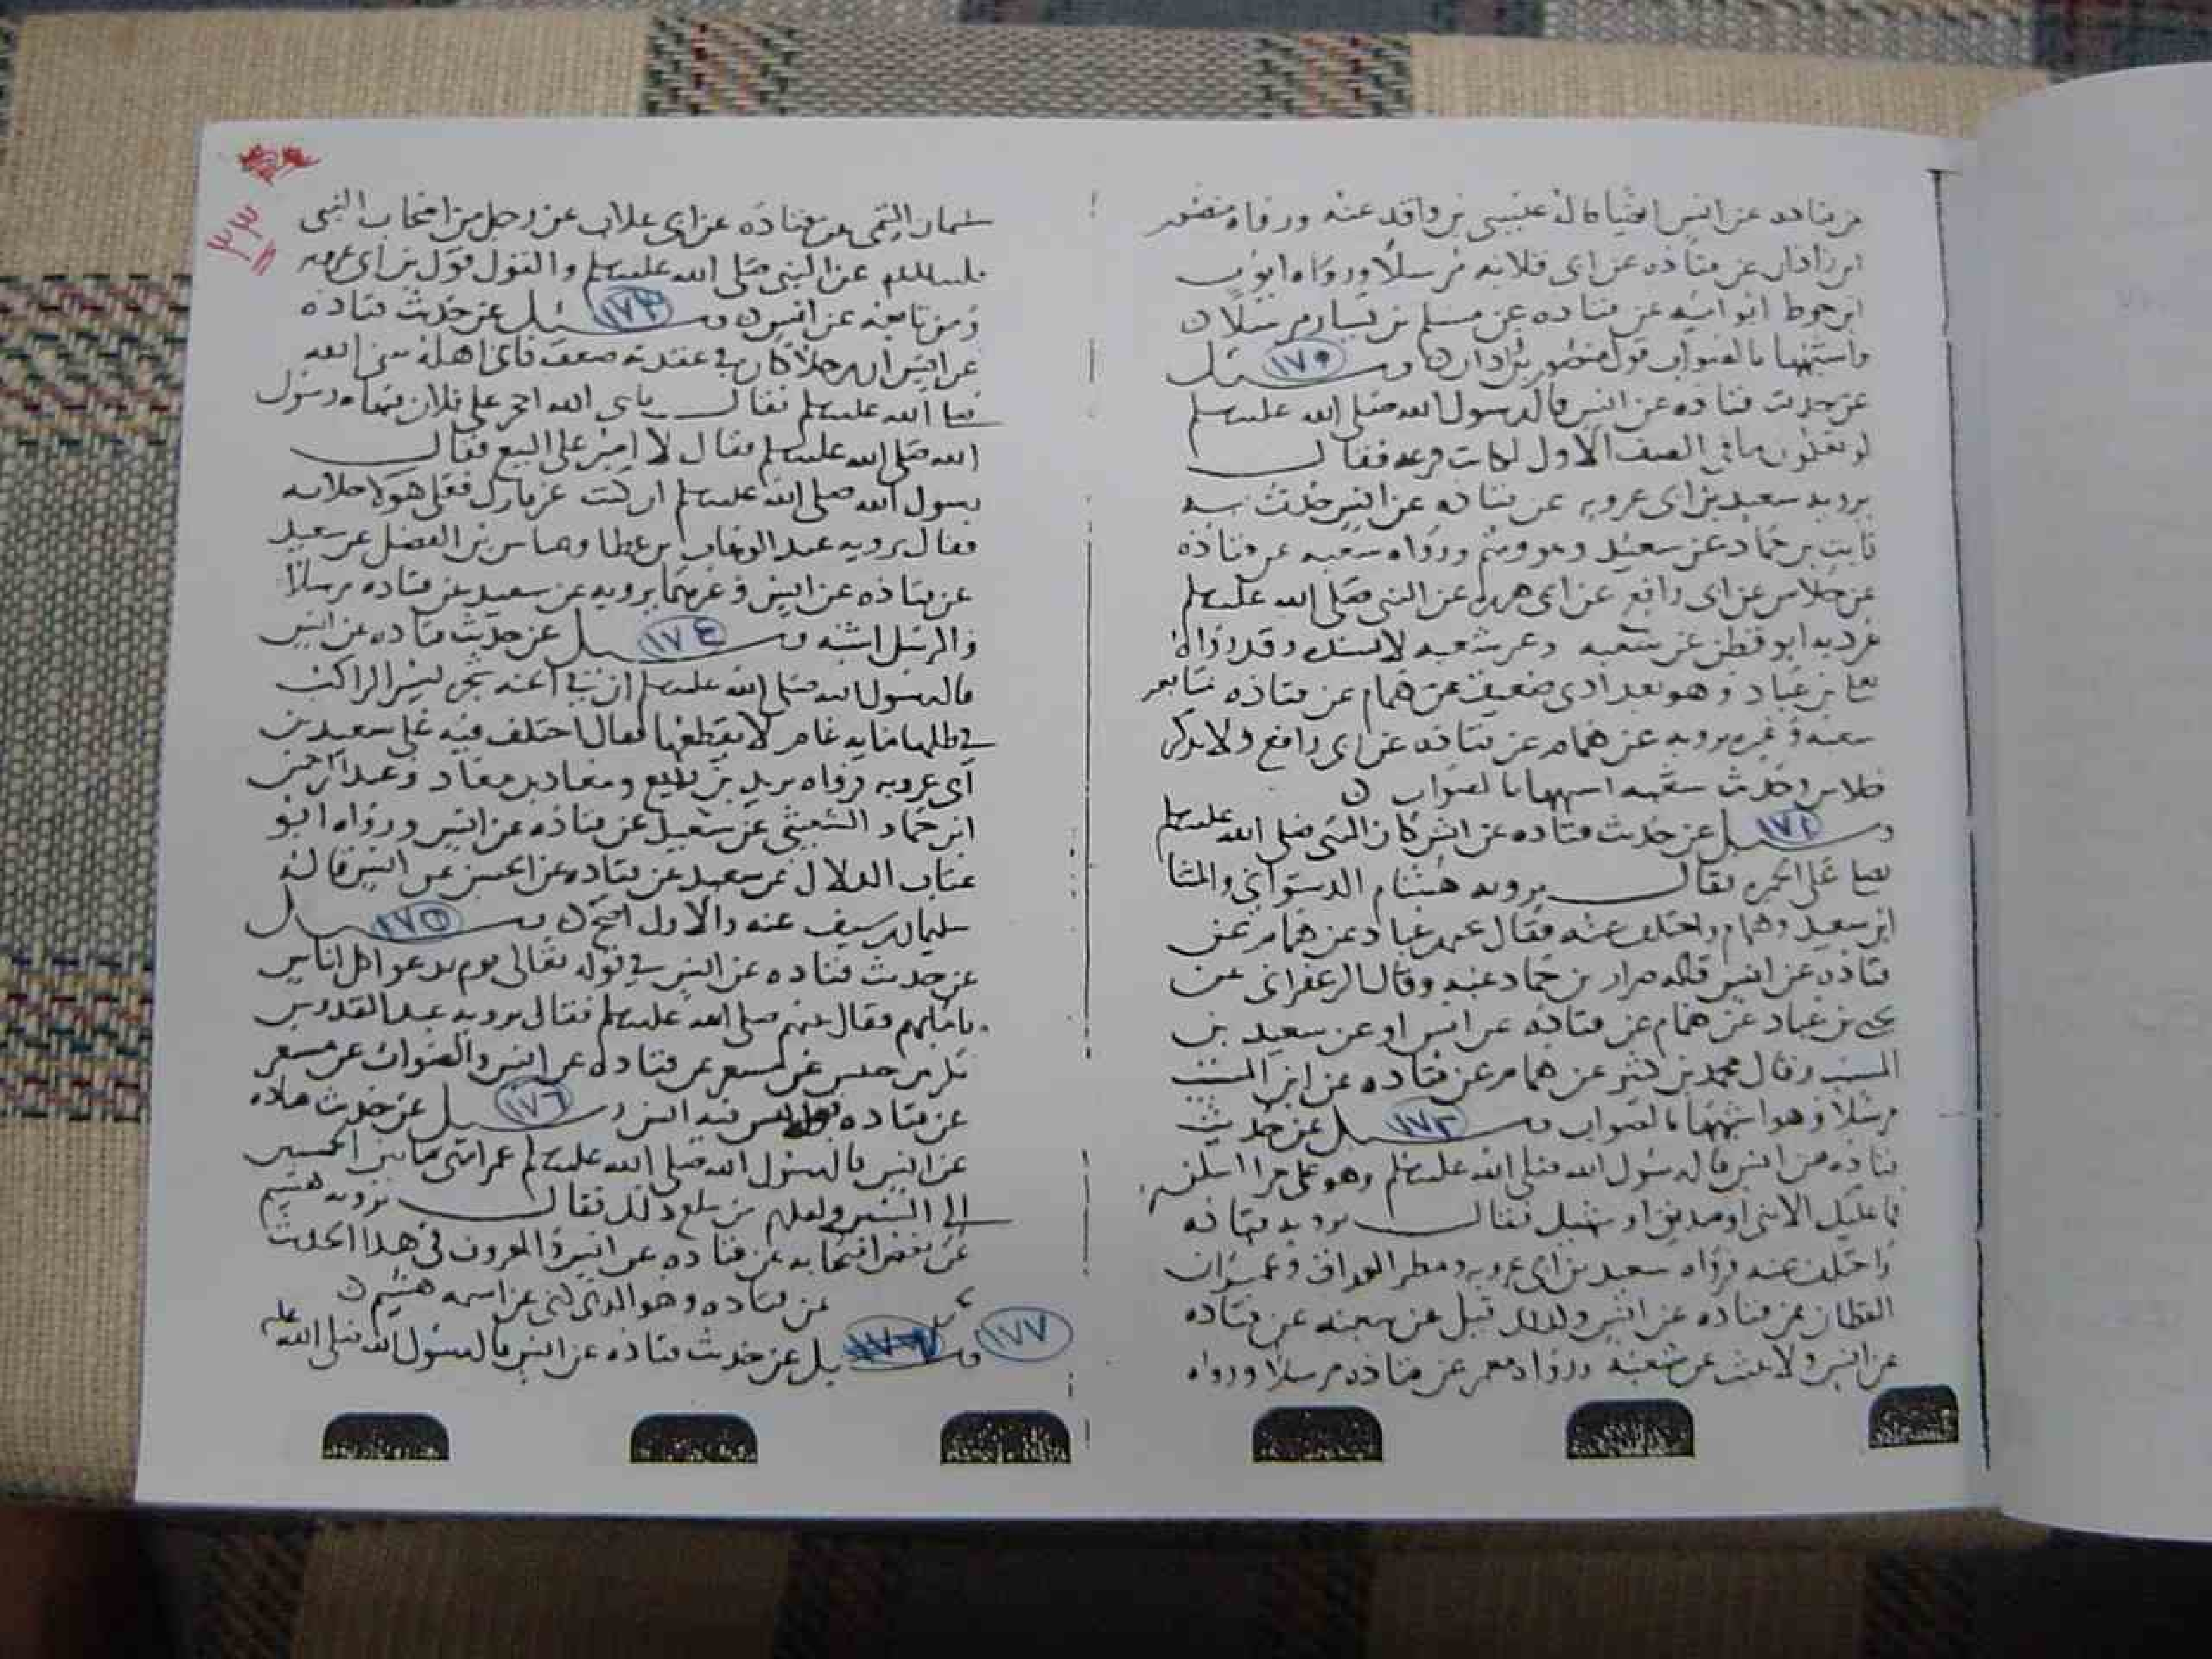 عن قتاده عن انس ايضا قاله عنبسى بن واقد عنه ورواه منصور
ابن زاذان عن قتاده عن ابى قلابه مرسلا ورواه ايوب
ابن خوط ابو اميه عن قتاده عن مسلم بن يسار مرسلا ن
واشبهها بالصواب قول منصور بن زاذان ن وسئل ١٧٠
عن حديث قتاده عن انس قال رسول الله صلى الله عليه وسلم
لو تعلمون ما فى الصف الاول لكانت قرعه فقال
يرويه سعيد بن ابى عروبه عن قتاده عن انس حدث به
ثابت بن حماد عن سعيد وهو وهم ورواه شعبه عن قتاده
عن خلاس عن ابى رافع عن ابى هريره عن النبى صلى الله عليه وسلم
تفرد به ابو قطن عن شعبه وغير شعبه لا يسنده وقد رواه
يحيا بن عباد وهو بغدادى ضعيف عن همام عن قتاده بمتابعه
شعبه وغيره يرويه عن همام عن قتاده عن ابى رافع ولا يذكر
خلاس وحديث شعبه اشبهها بالصواب ن
وسئل ١٧١ عن حديث قتاده عن انس كان النبى صلى الله عليه وسلم
يصلى على الخمره فقال يرويه هشام الدستوائى والمثنا
ابن سعيد وهمام واختلف عنه فقال عن عباد عن همام عن
قتاده عن انس قاله مرار بن حماد عنه وقال الزعفرانى عن
يحيى بن عباد عن همام عن قتاده عن انس او عن سعيد بن
المسيب وقال محمد بن كثير عن همام عن قتاده عن ابن المسيب
مرسلا وهو اشبهها بالصواب وسئل ١٧٢ عن حديث
قتاده عن انس قال رسول الله صلى الله عليه وسلم وهو على حرا اسكن
فما عليك الا نبى او صديق او شهيد فقال يرويه قتاده
واختلف عنه فرواه سعيد بن ابى عروبه ومطر الوراق وعمران
القطان عن قتاده عن انس وكذلك قيل عن شعبه عن قتاده
عن انس ولا يثبت عن شعبه ورواه معمر عن قتاده مرسلا ورواه
٣٣
سليمان التيمى عن قتاده عن ابى غلاب عن رجل من اصحاب النبى
عليه السلام عن النبى صلى الله عليه وسلم والقول قول بن ابى عروبه
ومن تابعه عن انس ن وسئل ١٧٣ عن حديث قتاده
عن انس ان رجلا كان فى عقدته ضعف فاتى اهله نبى الله
صلى الله عليه وسلم فقال يا نبى الله احجر على فلان فنهاه رسول
الله صلى الله عليه وسلم فقال لا اصبر على البيع فقال
رسول الله صلى الله عليه وسلم ان كنت غير تارك فقل هو لا خلابه
فقال يرويه عبد الوهاب بن عطا وعباس بن الفضل عن سعيد
عن قتاده عن انس وغيرهما يرويه عن سعيد عن قتاده مرسلا
والمرسل اشبه وسئل ١٧٤ عن حديث قتاده عن انس
قال رسول الله صلى الله عليه وسلم ان فى الجنه شجره يسير الراكب
فى ظلها مايه عام لا يقطعها فقال اختلف فيه على سعيد بن
ابى عروبه فرواه يزيد بن زريع ومعاذ بن معاذ وعبد الرحمن
ابن حماد الشعيثى عن سعيد عن قتاده عن انس ورواه ابو
عتاب الدلال عن سعيد عن قتاده عن الحسن عن انس قاله
سليمان بن سيف عنه والاول اصح ن وسئل ١٧٥
عن حديث قتاده عن انس فى قوله تعالى يوم ندعو كل اناس
بامامهم فقال نبيهم صلى الله عليه وسلم فقال يرويه عبد القدوس
بكر بن خنيس عن مسعر عن قتاده عن انس والصواب عن مسعر
عن قتاده ليس فيه انس وسئل ١٧٦ عن حديث قتاده
عن انس قال رسول الله صلى الله عليه وسلم عمر امتى ما بين الخمسين
الى الستين ولعلهم من يبلغ ذلك فقال يرويه هشيم
عن بعض اصحابه عن قتاده عن انس والمعروف فى هذا الحديث
عن قتاده وهو الذى كنى عن اسمه هشيم ن
١٧٧ وسئل عن حديث قتاده عن انس قال رسول الله صلى الله عليه